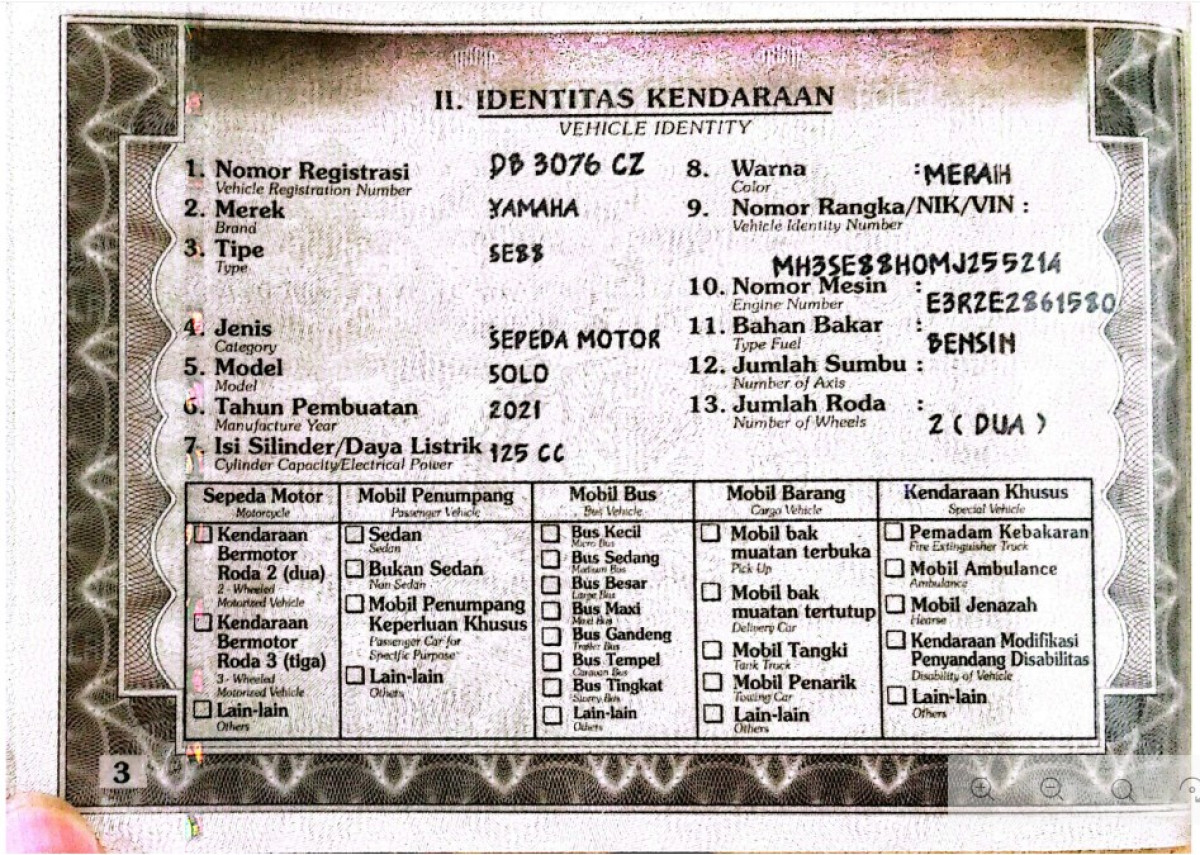 II. IDENTITAS KENDARAAN
VEHICLE IDENTITY
1. Nomor Registrasi DB 3076 CZ
Vehicle Registration Number
2. Merek YAMAHA
Brand
3. Tipe SE88
Type
4. Jenis SEPEDA MOTOR
Category
5. Model SOLO
Model
6. Tahun Pembuatan 2021
Manufacture Year
7. Isi Silinder/Daya Listrik 125 CC
Cylinder Capacity/Electrical Power
8. Warna : MERAH
Color
9. Nomor Rangka/NIK/VIN :
Vehicle Identity Number
MH3SE88H0MJ255214
10. Nomor Mesin :
Engine Number
E3R2E2861580
11. Bahan Bakar :
Type Fuel
BENSIN
12. Jumlah Sumbu :
Number of Axis
13. Jumlah Roda :
Number of Wheels
2 ( DUA )
Sepeda Motor
Motorcycle
Kendaraan
Bermotor
Roda 2 (dua)
2 - Wheeled
Motorized Vehicle
Kendaraan
Bermotor
Roda 3 (tiga)
3 - Wheeled
Motorized Vehicle
Lain-lain
Others
Mobil Penumpang
Passenger Vehicle
Sedan
Sedan
Bukan Sedan
Non Sedan
Mobil Penumpang
Keperluan Khusus
Passenger Car for
Specific Purpose
Lain-lain
Others
Mobil Bus
Bus Vehicle
Bus Kecil
Micro Bus
Bus Sedang
Medium Bus
Bus Besar
Large Bus
Bus Maxi
Maxi Bus
Bus Gandeng
Trailer Bus
Bus Tempel
Caravan Bus
Bus Tingkat
Bus
Lain-lain
Others
Mobil Barang
Cargo Vehicle
Mobil bak
muatan terbuka
Pick Up
Mobil bak
muatan tertutup
Delivery Car
Mobil Tangki
Tank Truck
Mobil Penarik
Towing Car
Lain-lain
Others
Kendaraan Khusus
Special Vehicle
Pemadam Kebakaran
Fire Extinguisher Truck
Mobil Ambulance
Ambulance
Mobil Jenazah
Hearse
Kendaraan Modifikasi
Penyandang Disabilitas
Disability of Vehicle
Lain-lain
Others
3